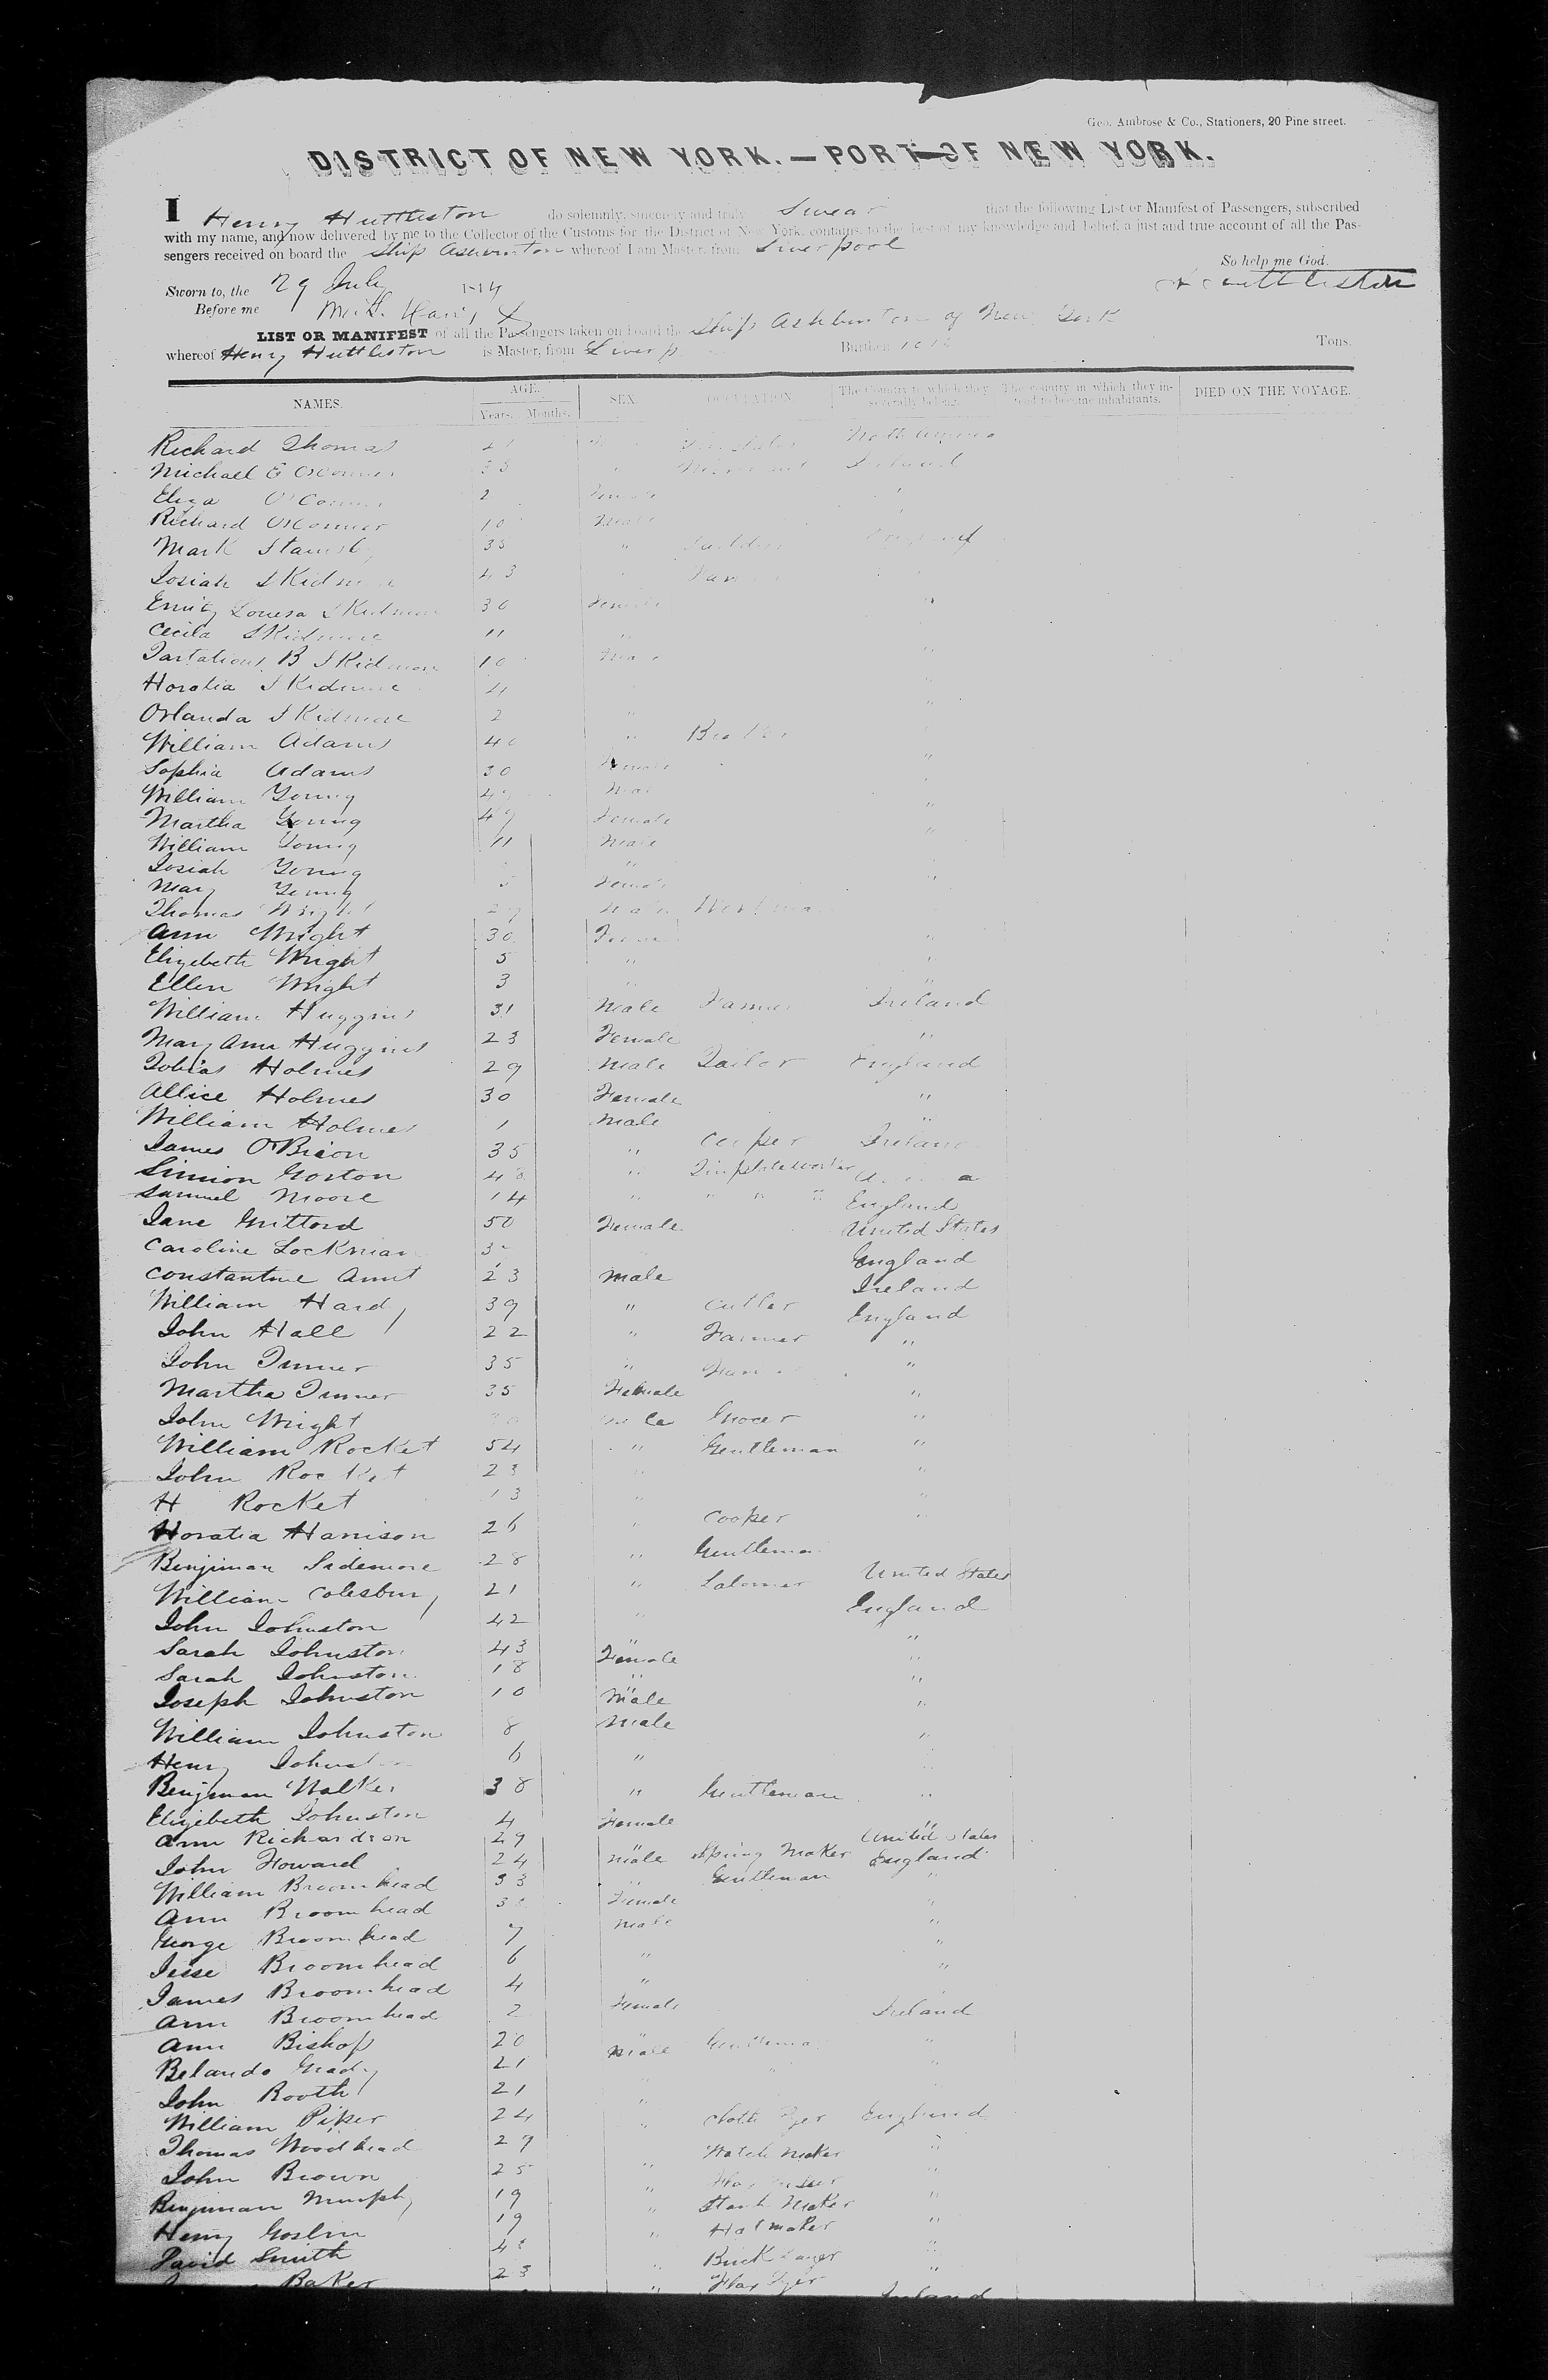 Geo. Ambrose & Co., Stationers, 20 Pine street.
DISTRICT OF NEW YORK.—PORT OF NEW YORK.
I Henry Huttleston do solemnly, sincerely and truly Swear that the following List or Manifest of Passengers, subscribed
with my name, and now delivered by me to the Collector of the Customs for the District of New York, contains, to the best of my knowledge and belief, a just and true account of all the Pas-
sengers received on board the Ship Ashburton whereof I am Master, from Liverpool
So help me God.
Sworn to, the 29 July
H Huttleston
Before me
LIST OR MANIFEST of all the Passengers taken on board the Ship Ashburton of New York
whereof Henry Huttleston is Master, from Liverp Burthen Tons.
NAMES. AGE. Years. Months. SEX. OCCUPATION. The Country to which they severally belong. The country in which they intend to become inhabitants. DIED ON THE VOYAGE.
Richard Thomas North America
Michael E O'Connor Ireland
Eliza O'Connor Female
Richard O'Connor 10 Male
Mark 35 "
Josiah Skidmore 43
Emily Louesa Skidmore 30 Female "
Cecila Skidmore 11 "
B Skidmore 10 Male "
Horatia Skidmore 4 "
Orlanda Skidmore 2 " "
William Adams 40 "
Sophia Adams 30 Female "
William Young Male
Martha Young 49 Female "
William Young 11 Male "
Josiah Young "
Mary Young 5 Female "
Thomas Wright Male
Ann Wright 30 "
Elizebeth Wright 5 " "
Ellen Wright 3 " "
William Huggins 31 Male Farmer Ireland
Mary Ann Huggins 23 Female "
Tobias Holmes 29 Male Tailor England
Allice Holmes 30 Female "
William Holmes 1 Male "
James O'Brion 35 " Cooper Ireland
Simion Gorton 48 " Tinplateworker
Samuel Moore 14 " " " " England
Jane Gritford 50 Female United States
Caroline Lockman England
Constantine 23 Male Ireland
William Hardy 39 " Cutler England
John Hall 22 " Farmer "
John Turner 35 " "
Martha Turner 35 Female "
John Wright Male Grocer "
William Rocket 54 " Gentleman "
John Rocket 23 " "
H Rocket 13 " "
Horatia Harrison 26 " Cooper "
Benjiman Sidemore 28 " Gentleman
William Colesbury 21 " Laborer United States
John Johnston 42 " England
Sarah Johnston 43 Female "
Sarah Johnston 18 " "
Joseph Johnston 10 Male "
William Johnston 8 Male "
Henry Johnst 6 " "
Benjiman Walker 38 " Gentleman "
Elizebeth Johnston 4 Female "
Ann Richardson 29 " United States
John Howard 24 Male Spring Maker England
William Broomhead 33 " Gentleman "
Ann Broomhead Female "
George Broomhead 7 Male "
Jesse Broomhead 6 " "
James Broomhead 4 " "
Ann Broomhead 2 Female
Ann Bishop 20 " Ireland
Belando Grady 21 Male Gentleman "
John Booth 21 " " "
William Piper 24 " Cloth Dyer England
Thomas Woodhead 29 " Watch Maker "
John Brown 25 " "
Benjiman Murphy 19 " Maker "
Henry Goslin 19 " Hatmaker "
David Smith " Brick Layer "
Baker 23 " Dyer "
Ireland